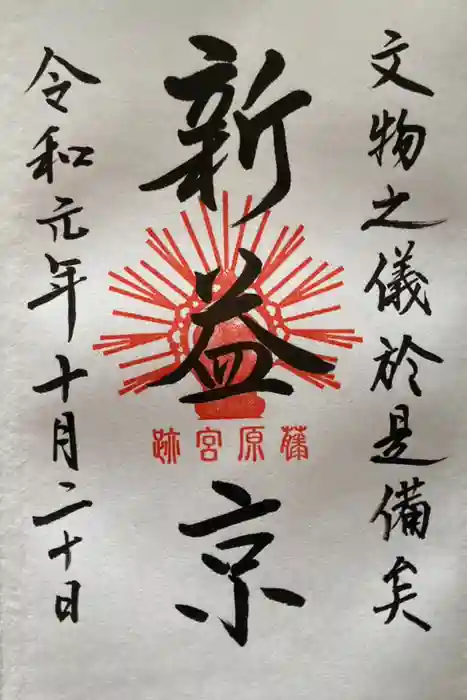 文物之儀於是備矣
新益京
藤原宮跡
令和元年十月二十日